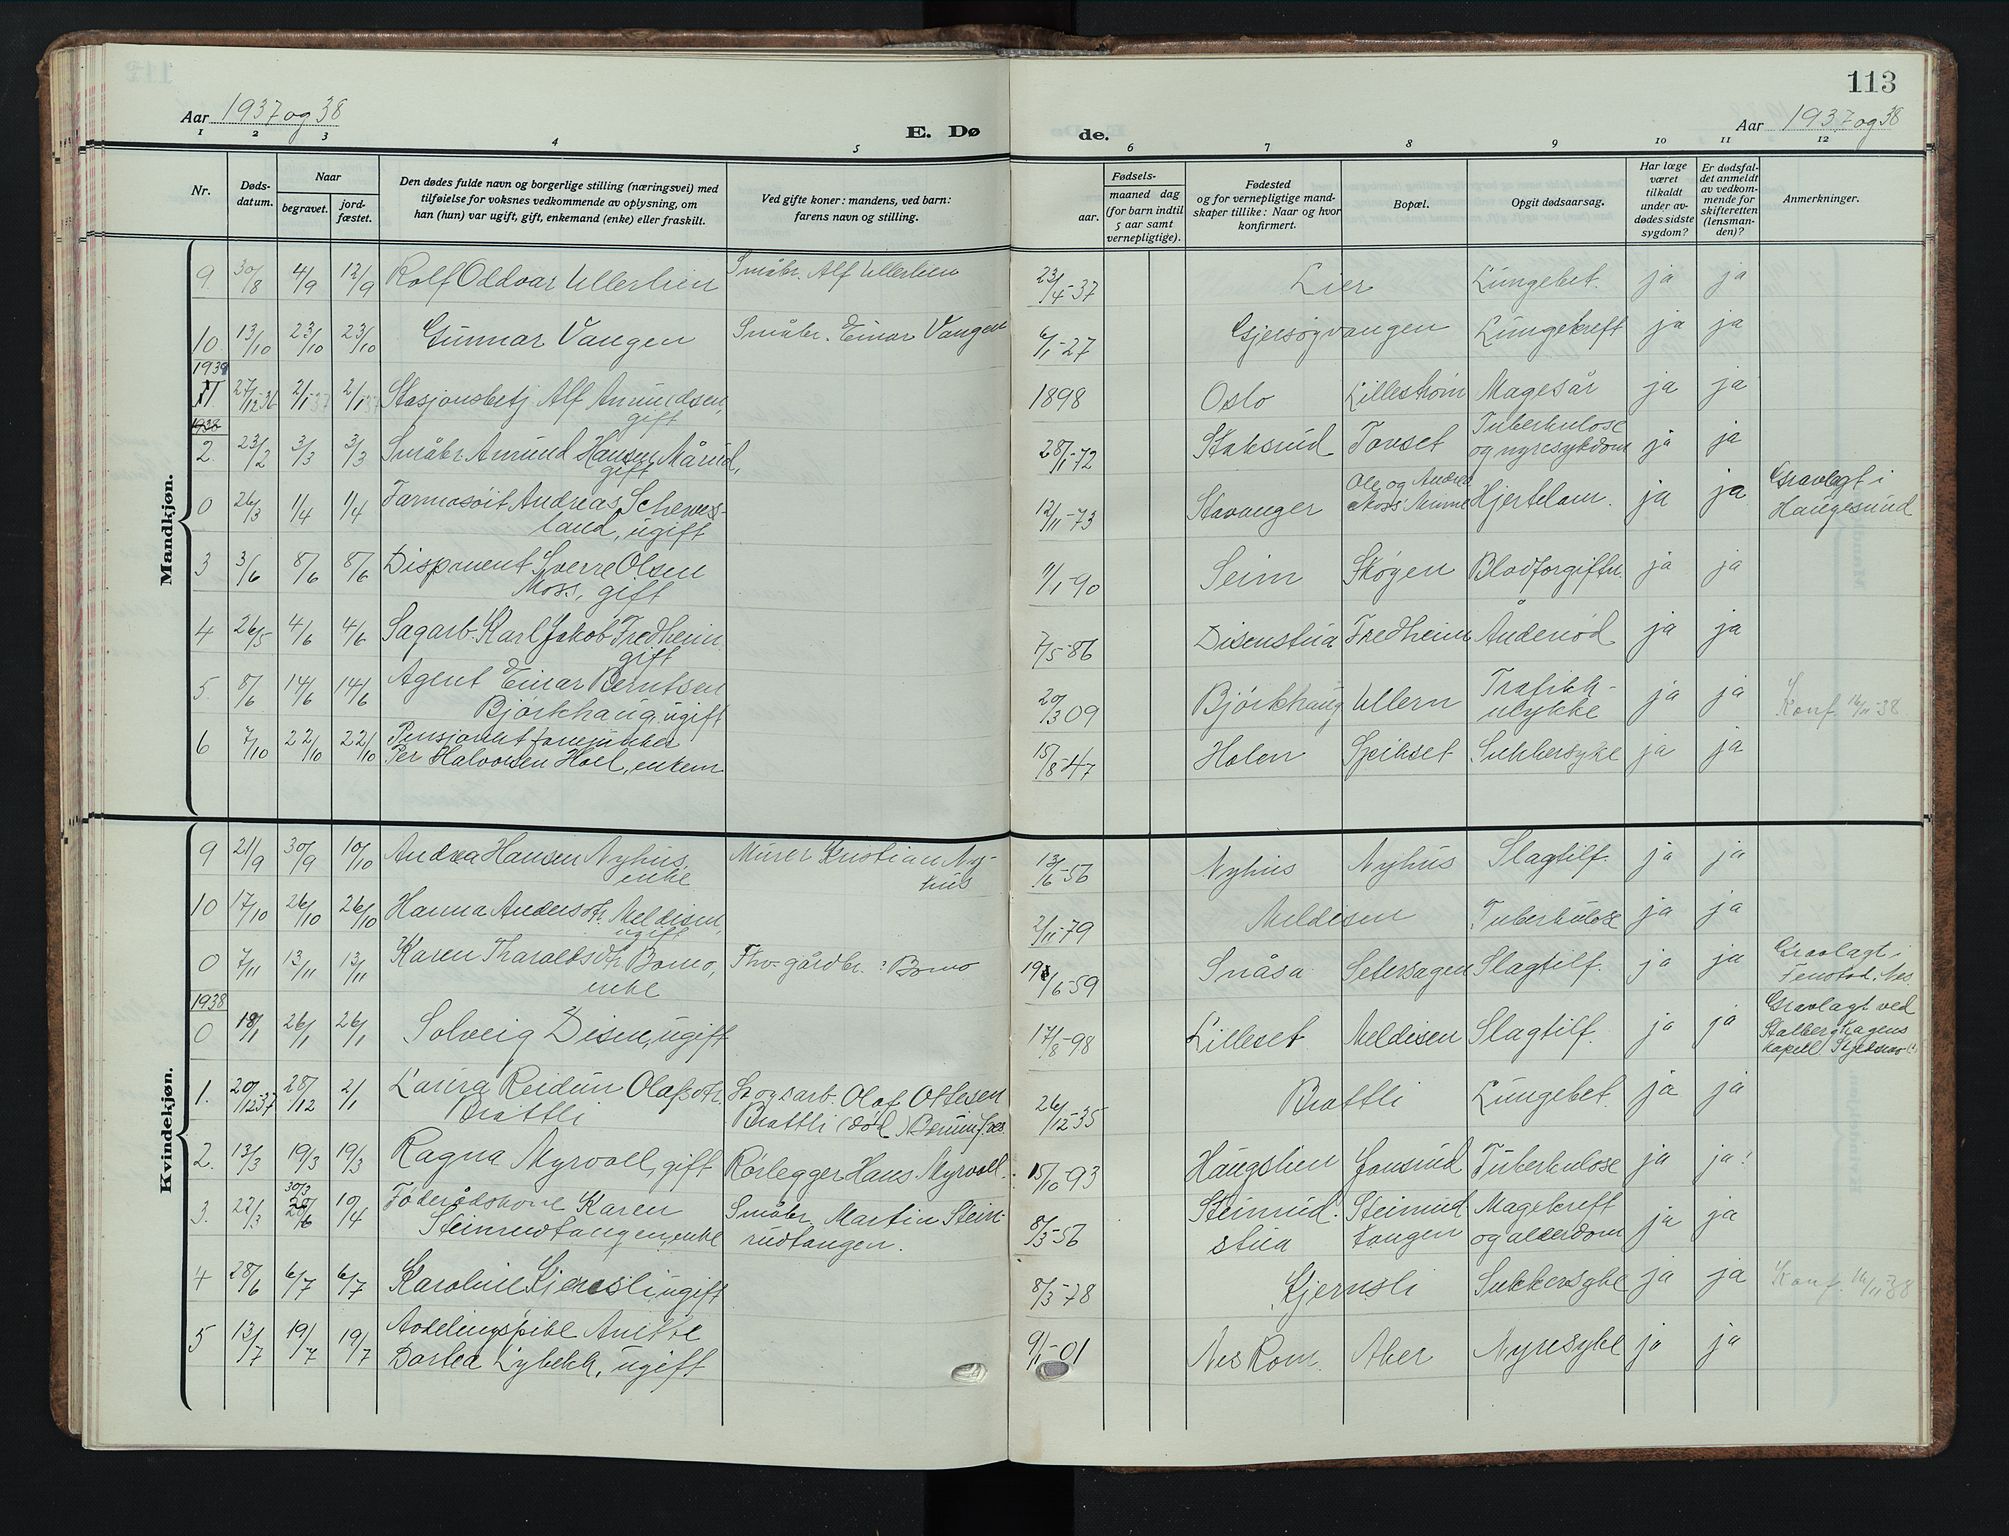 113
Aar 1937 og 38
E. Dø
de.
Aar 1937 og 38
1 2 3 4 5 6 7 8 9 10 11 12
Nr.
Døds-
datum.
Naar
begravet.
jord-
fæstet.
Den dødes fulde navn og borgerlige stilling (næringsvei) med
tilføielse for voksnes vedkommende av oplysning, om
han (hun) var ugift, gift, enkemand (enke) eller fraskilt.
Ved gifte koner: mandens, ved barn:
farens navn og stilling.
Fødsels-
aar. maaned dag
(for barn indtil
5 aar samt
vernepligtige).
Fødested
og for vernepligtige mand-
skaper tillike: Naar og hvor
konfirmert.
Bopæl.
Opgit dødsaarsag.
Har læge
været
tilkaldt
under av-
dødes sidste
sygdom?
Er dødsfal-
det anmeldt
av vedkom-
mende for
skifteretten
(lensman-
den)?
Anmerkninger.
Mandkjøn.
9. 30/8 4/9 12/9 Rolf Oddvar Ullerlien Småbr. Alf Ullerlien 23/4-37 Lier Lungebet. ja ja
10 13/10 23/10 23/10 Gunnar Vangen Småbr. Einar Vangen 6/1-27 Gjersøgvangen Lungekreft ja ja
27/12-36 2/1 37 2/1 37 Stasjonsbetj. Alf Amundsen, 1898 Oslo Lillestrøm Magesår ja ja
gift
1938
2. 23/2 3/3 3/3 Småbr. Amund Hansen Mårud, 28/1-72 Staksrud Tovset Tuberkulose ja ja
gift og nyresykdom
0 26/3 1/4 1/4 Farmasøit Andreas 12/11-73 Stavanger Ole og Hjertelam. ja ja Gravlagt i
land, ugift Haugesund
3 3/6 8/6 8/6 Disponent Sverre Olsen 11/1-90 Seim Skogen Blodforgiftn. ja ja
Moss, gift
4 26/5 4/6 4/6 Sagarb. Karl Jakob Fredheim 7/5-86 Disenstua Fredheim Åndenød ja ja
gift
5. 8/6 14/6 14/6 Agent Einar Berntsen 20/3 09 Bjørkhaug Ullern Trafikk- ja ja Konf. 16/11-38
Bjørkhaug, ugift ulykke
6 7/10 22/10 22/10 15/8-47 Holen Speikset Sukkersyke ja ja
Per Halvorsen Hoel, enkem
Kvindekjøn.
9 21/9 30/9 10/10 Andrea Hansen Nyhus Murer Kristian Ny- 13/6-56 Nyhus Nyhus Slagtilf. ja ja
enke hus
10 17/10 26/10 26/10 Hanna Andersdtr. Meldisen, 2/11-79 Meldisen Tuberkulose ja ja
ugift
0 7/11 13/11 13/11 Karen Tharaldsdtr Bomo, Fhv. gårdbr. : Bomo 19/6-59 Snåsa Setersagen Slagtilf. ja ja Gravlagt i
enke Fenstad, Nes
1938
0 18/1 26/1 26/1 Solveig Disen, ugift 17/8-98 Lilleset Meldisen Slagtilf. ja ja Gravlagt ved
Kapell
1. 20/12-37 28/12 2/1 Laura Reidun Olafsdtr. Skogsarb. Olaf Ottesen 26/12-35 Brattli Lungebet. ja ja
Brattli Brattli (død)
2. 13/3 19/3 19/3 Ragna Myrvoll, gift Rørlegger Hans Myrvoll. 15/10-93 Haugslien Jonsrud Tuberkulose ja ja!
3. 22/3 30/3 10/4 Føderådskone Karen Småbr. Martin Stein- 8/5-56 Steinrud- Steinrud Magekreft ja ja
Steinrudtangen, enke rudtangen. stua tangen og alderdom
4 28/6 6/7 6/7 Karoline Kjernsli, ugift 8/3-78 Kjernsli Sukkersyke ja ja Konf. 16/11-38
5 13/7 19/7 19/7 Avdelingspike Anette 9/11-01 Nes Rom. Aker Nyresyke ja ja
Dortea Lybekk, ugift